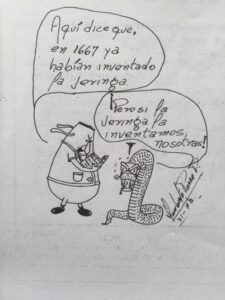 Aquí dice que,
en 1667 ya
habían inventado
la jeringa.
Pero si la
jeringa la
inventamos
nosotras!